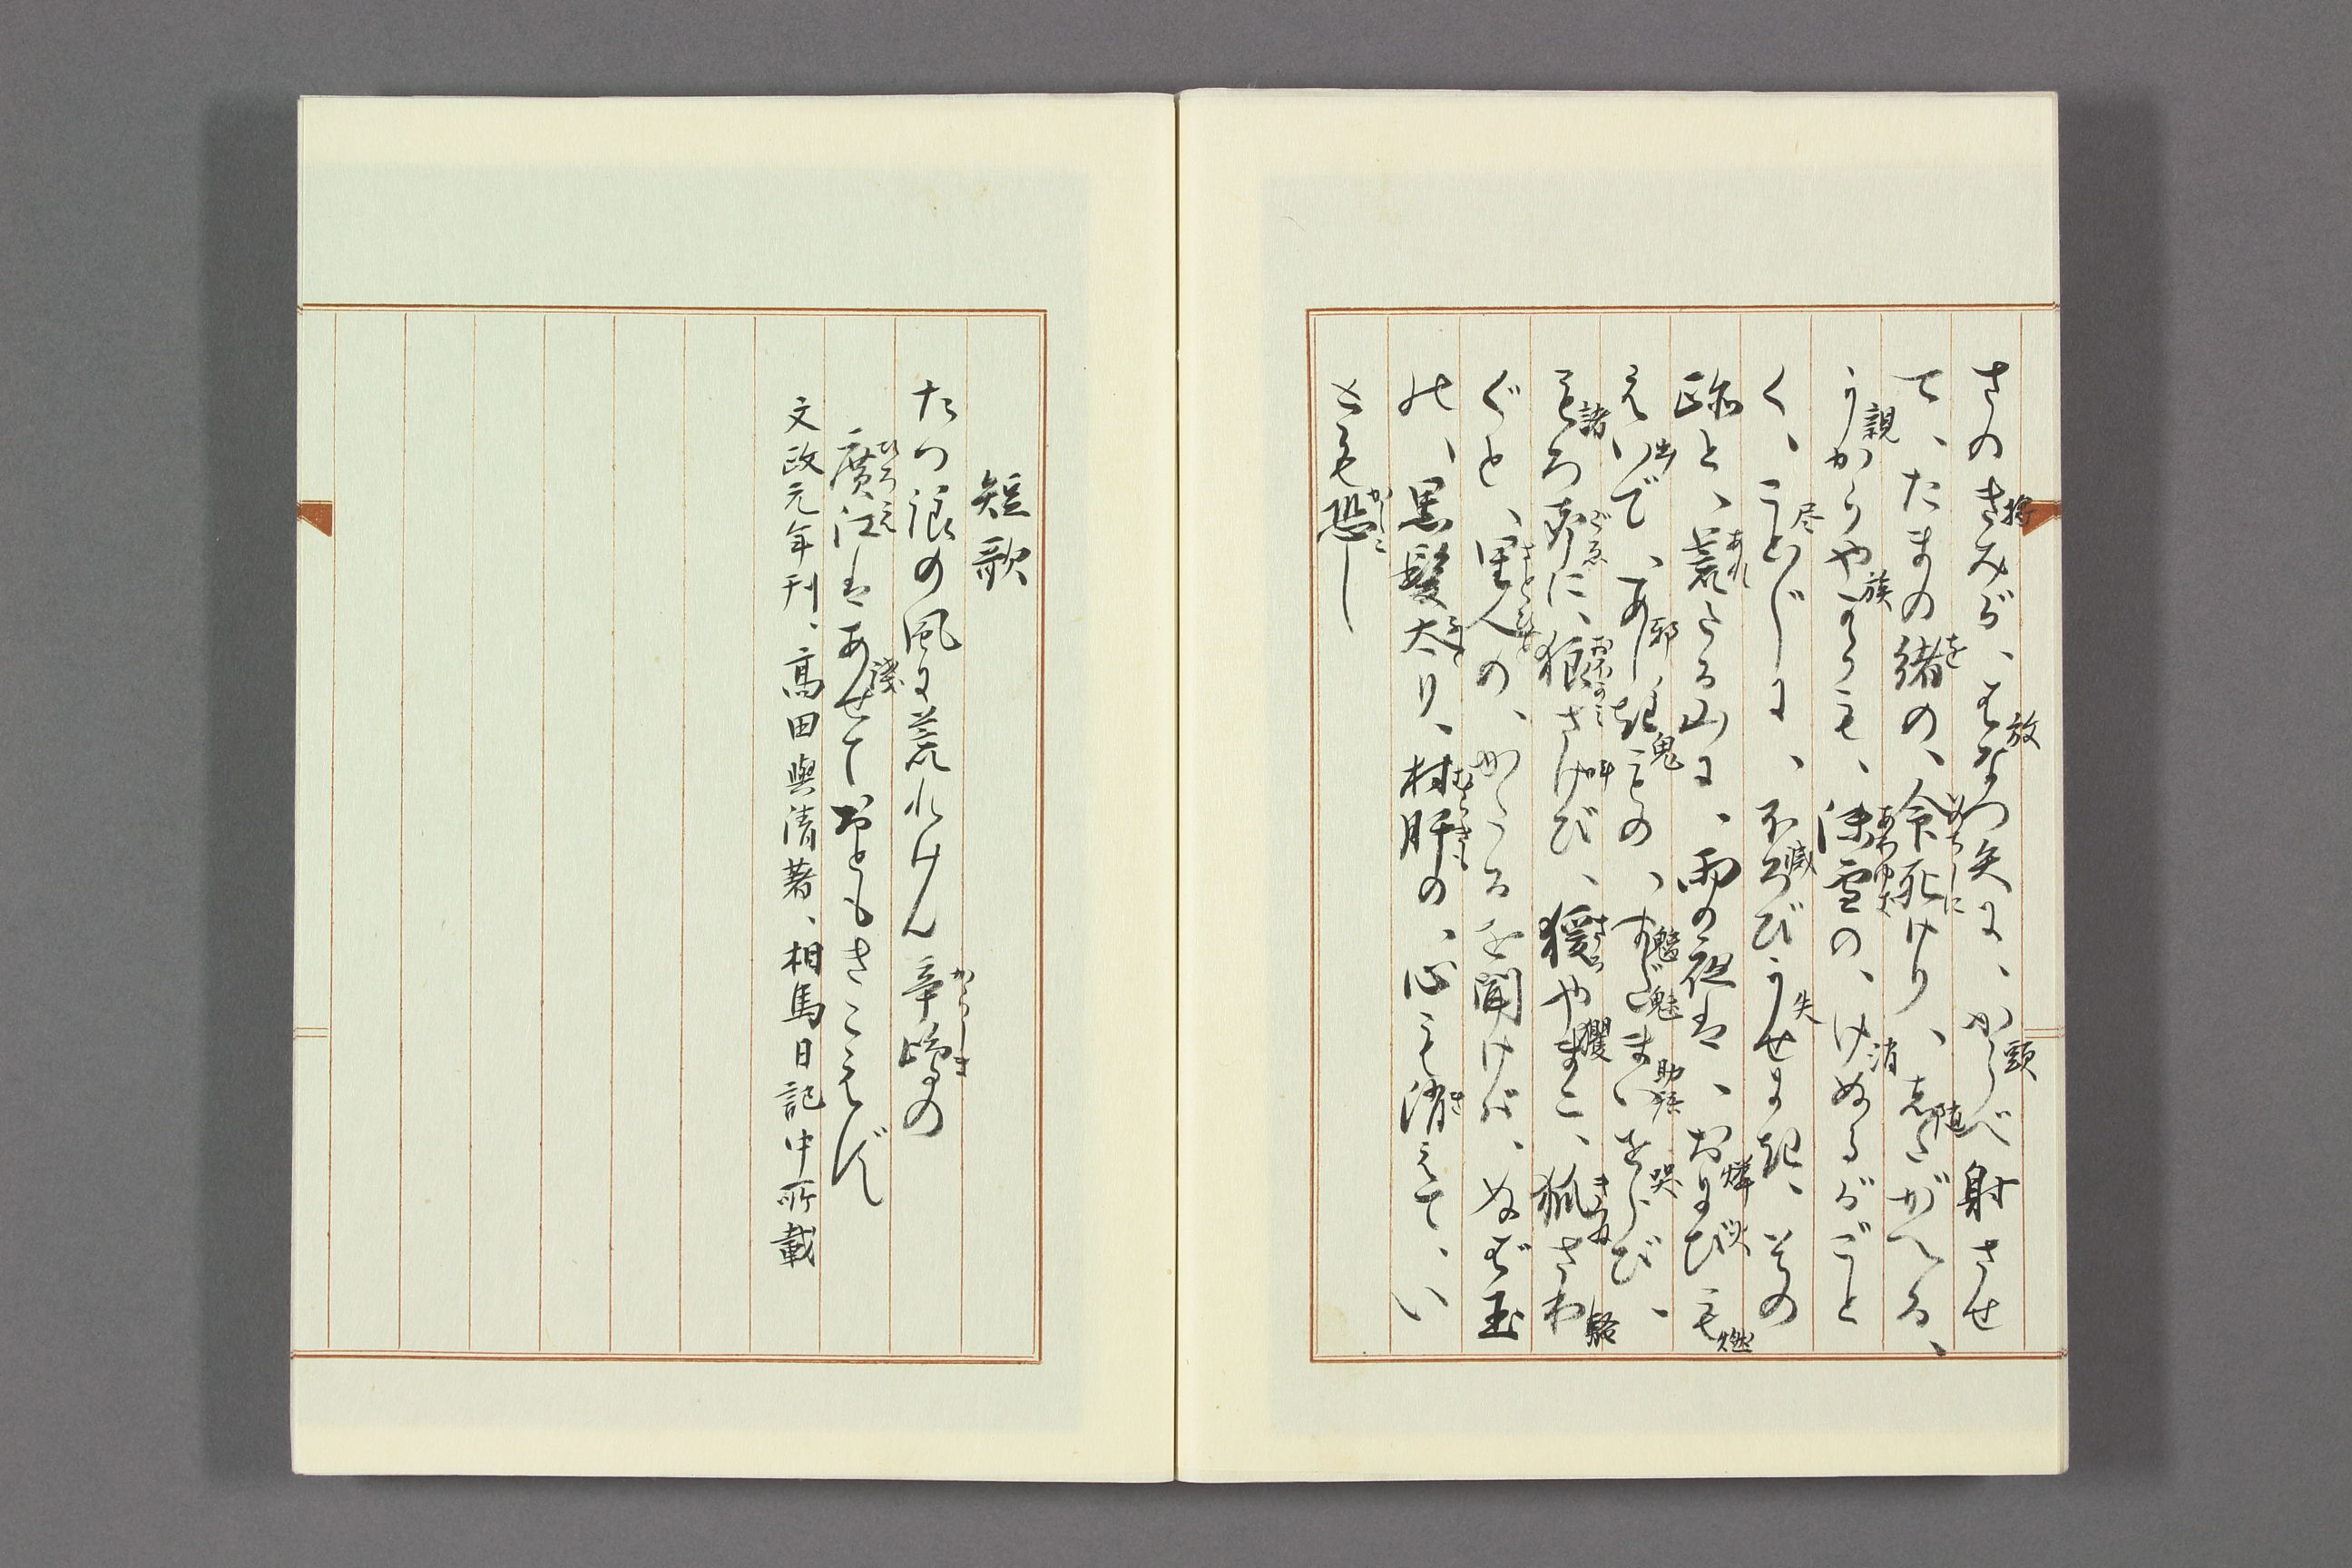 さのきみが、はなつ矢に、かしらべ射させ
て、たまの緒の、命死けり、志たがへる、
うからやからも、沫雪の、けぬるがごと
く、こと〴〵に、ほろびうせにき、その
跡と、荒たる山に、雨の夜は、おにび毛
えいで、あしき毛のゝ、すだまいをらび、
毛ろ声に、狼さけび、猨やまこ、狐さわ
ぐと、里人の、かたるを聞けば、ぬば玉
の、黒髪太り、村肝の、心も消えて、い
とも恐し
短歌
たつ浪の風に荒れけん辛嶋の
廣江はあせておともきこえず
文政元年刊、高田與清著、相馬日記中所載